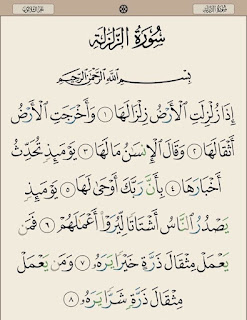 سُورَةُ الزَّلْزَلَةِ
بِسْمِ اللَّهِ الرَّحْمَٰنِ الرَّحِيمِ
إِذَا زُلْزِلَتِ ٱلْأَرْضُ زِلْزَالَهَا ١ وَأَخْرَجَتِ ٱلْأَرْضُ
أَثْقَالَهَا ٢ وَقَالَ ٱلْإِنسَٰنُ مَا لَهَا ٣ يَوْمَئِذٍ تُحَدِّثُ
أَخْبَارَهَا ٤ بِأَنَّ رَبَّكَ أَوْحَىٰ لَهَا ٥ يَوْمَئِذٍ
يَصْدُرُ ٱلنَّاسُ أَشْتَاتًا لِّيُرَوْا۟ أَعْمَٰلَهُمْ ٦ فَمَن
يَعْمَلْ مِثْقَالَ ذَرَّةٍ خَيْرًا يَرَهُۥ ٧ وَمَن يَعْمَلْ
مِثْقَالَ ذَرَّةٍ شَرًّا يَرَهُۥ ٨